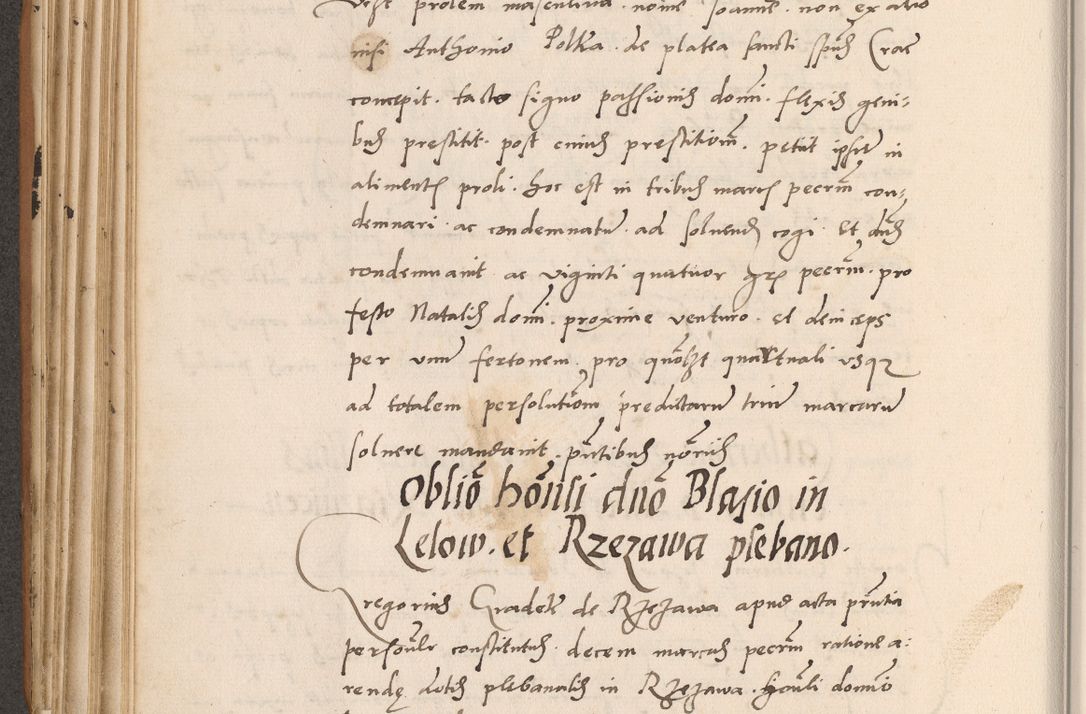 prolem masculina nomine Joanne non ex alio
nisi Anthonio Polka de platea sancti Spūs Crac
concepit. facto signo passionis domī flexis geni:
bus prestitit. post cuius prestitionē. petit ipsū in
alimentis proli. hoc est in tribus marcis pecun̄ con:
demnari ac condemnatū ad solvend cogi. Et dn̄s
condemnavit ac viginti quatuor grs pecun̄ pro
festo Natalis domī proxime venturo et deinceps
per unū fertonem pro quolzt quartuali usqz
ad totalem persolutionem predictarū triū marcarū
solvere mandavit. pn̄tibus nōriis
Oblīo hōnsi dnō Blasio in
Lelow et Rzezawa plebano.
Gregorius Gradek de Rzezawa apud acta pn̄tia
personlr constitutus. decem marcas pecun̄ ratione a:
rendę dotis plebanalis in Rzezawa. Hōnli domīo